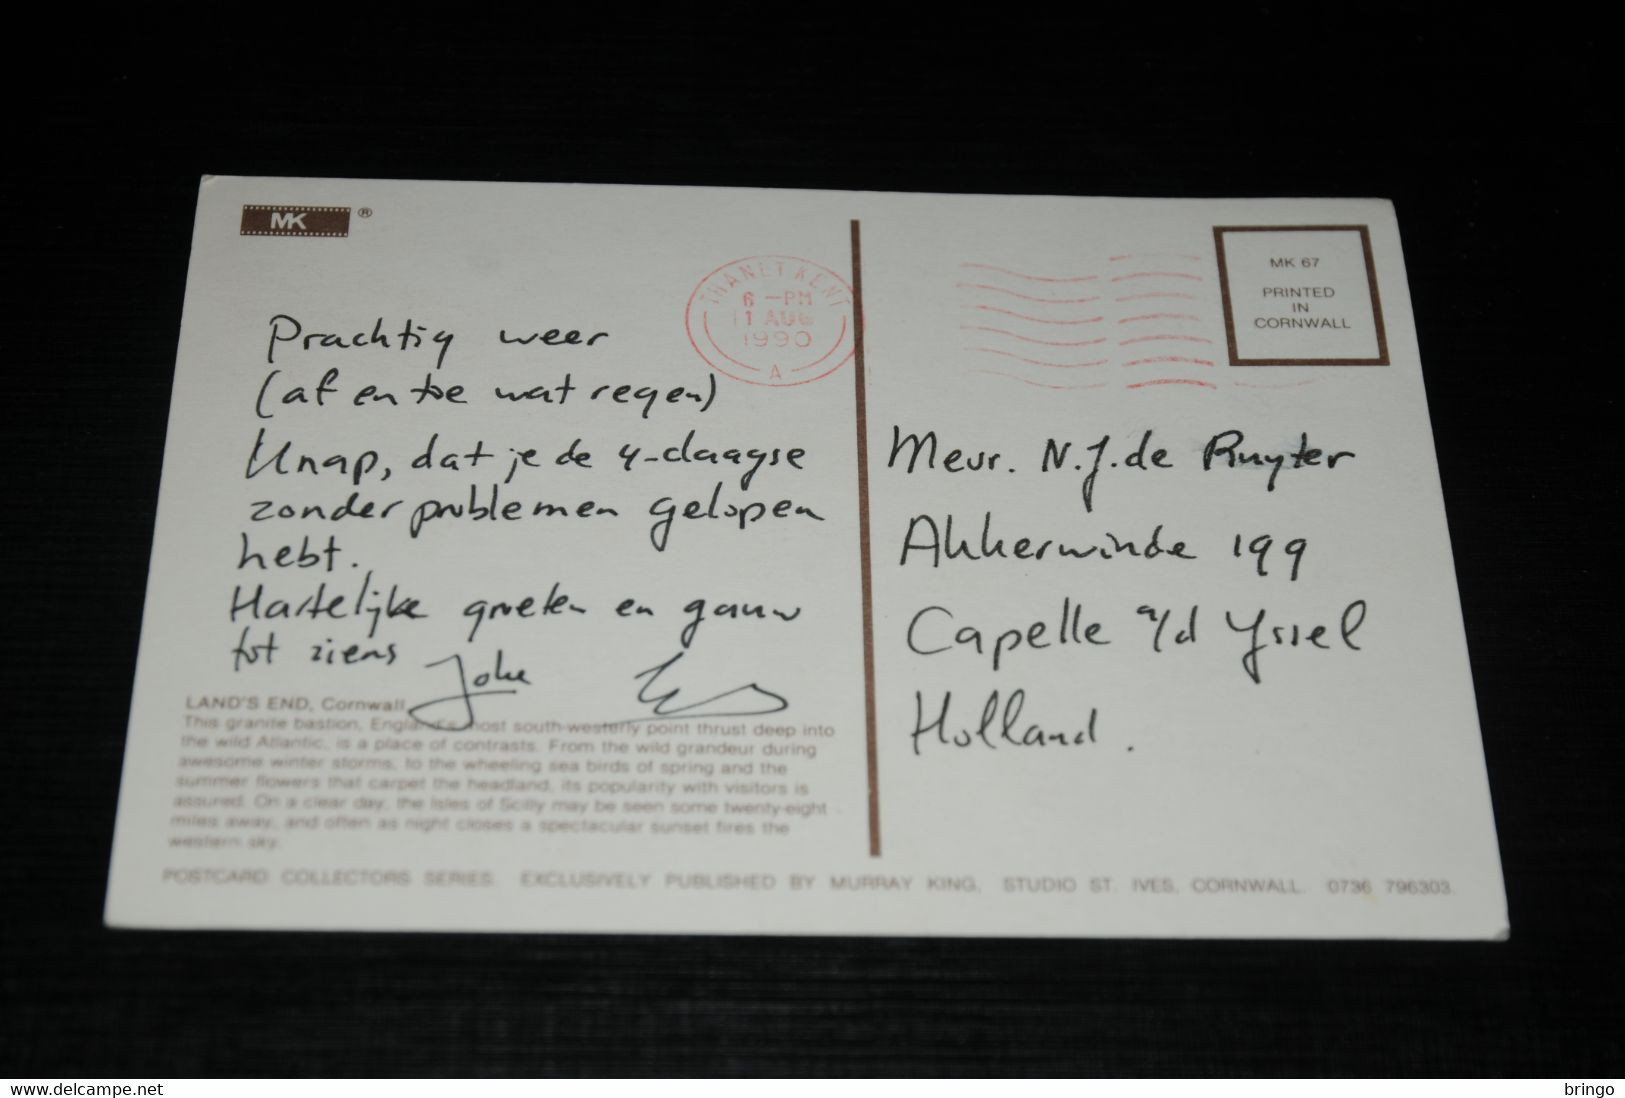 MK ®
THANET KENT
6 -PM
11 AUG
1990
A
MK 67
PRINTED
IN
CORNWALL
Prachtig weer
(af en toe wat regen)
Knap, dat je de 4-daagse
zonder problemen gelopen
hebt.
Hartelijke groeten en gauw
tot ziens
Joke
Mevr. N.J. de Ruyter
Akkerwinde 199
Capelle a/d Yssel
Holland.
LAND'S END, Cornwall.
This granite bastion, England's most south-westerly point thrust deep into
the wild Atlantic, is a place of contrasts. From the wild grandeur during
awesome winter storms, to the wheeling sea birds of spring and the
summer flowers that carpet the headland, its popularity with visitors is
assured. On a clear day, the Isles of Scilly may be seen some twenty-eight
miles away, and often as night closes a spectacular sunset fires the
western sky.
POSTCARD COLLECTORS SERIES. EXCLUSIVELY PUBLISHED BY MURRAY KING, STUDIO ST. IVES, CORNWALL. 0736 796303.
www.delcampe.net
bringo